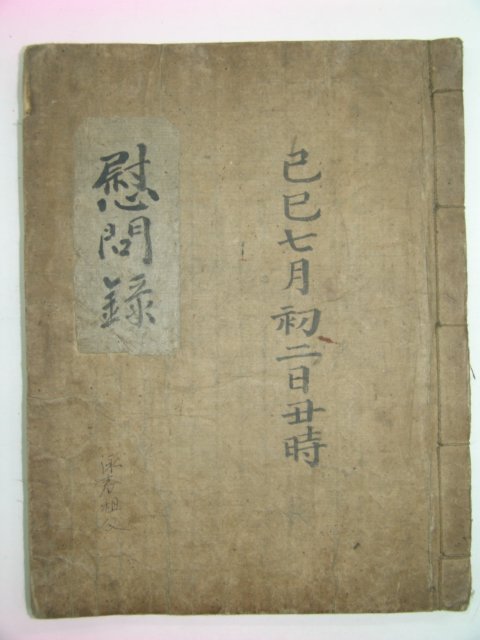 己巳七月初二日丑時
慰問錄
祖父